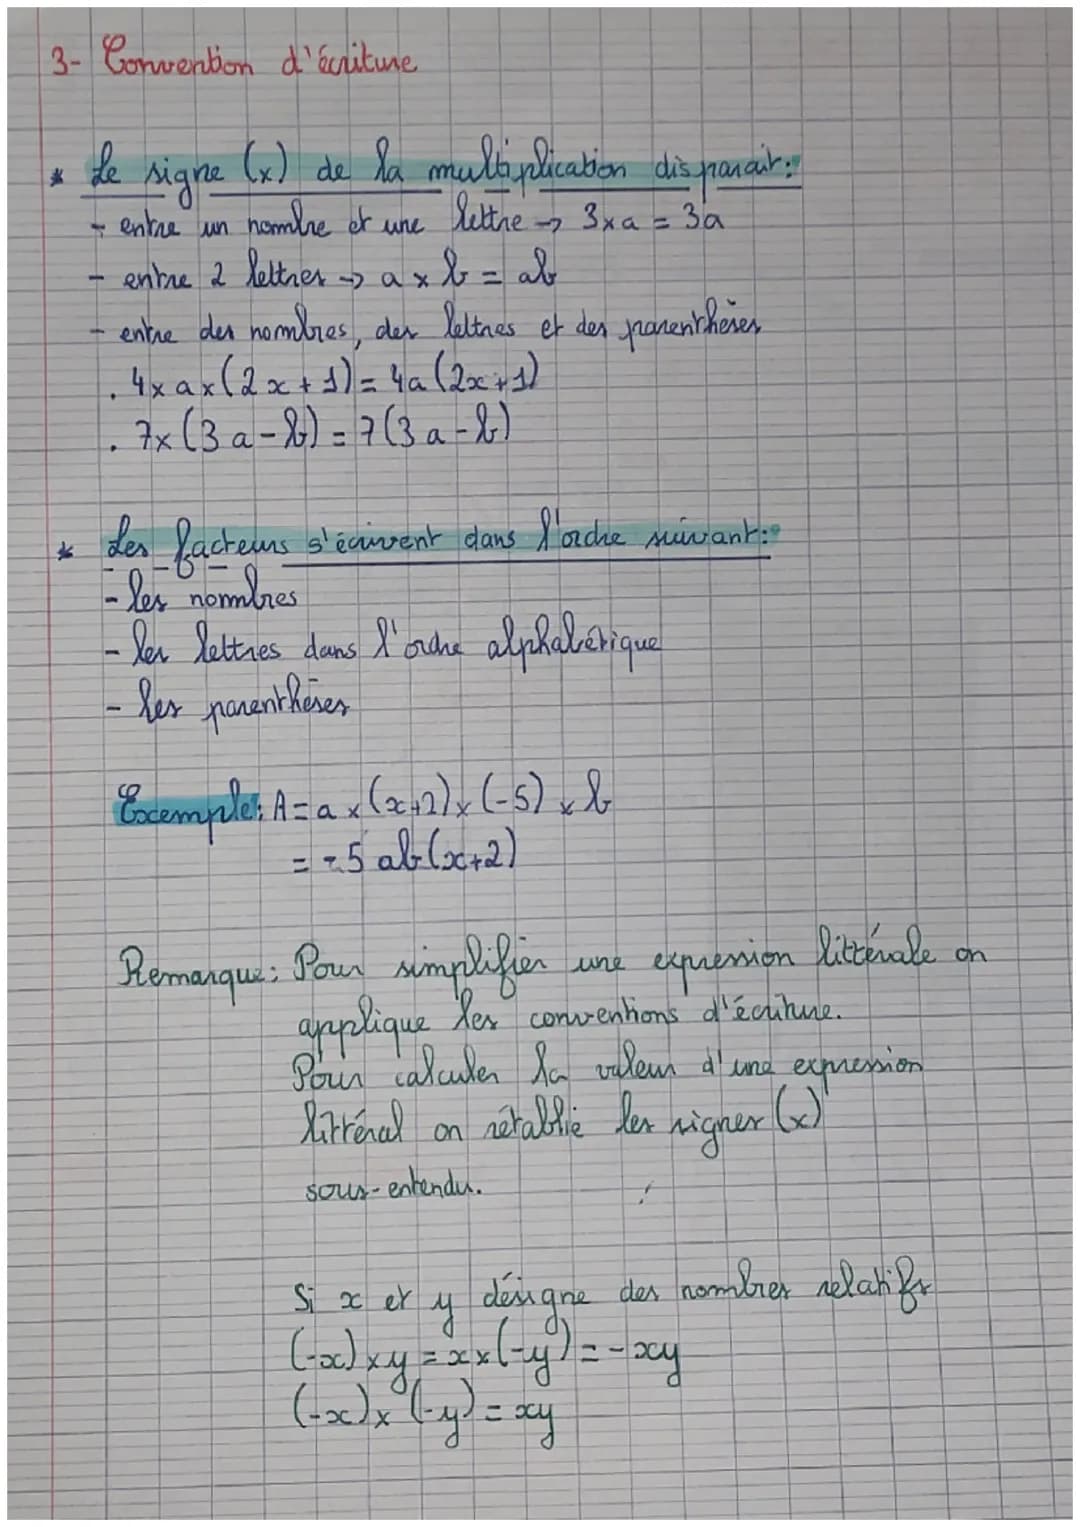 3- Convention d'écriture
* Le signe (x) de la multiplication disparait:
- entre un nombre et une lettre → 3xa = 3a
- entre 2 lettres → a x b = ab
- entre des nombres, des lettres et des parenthèses
. 4x a x (2x + 1) = 4a (2x+1)
. 7x (3 a - b) = 7 (3 a - b)
* Les facteurs s'écrivent dans l'ordre suivant:
- les nombres
- les lettres dans l'ordre alphabétique
- les parenthèses
Exemple: A = a x (x+2) x (-5) x b
= -5 ab (x+2)
Remarque: Pour simplifier une expression littérale on
applique les conventions d'écriture.
Pour calculer la valeur d'une expression
littéral on rétablie les signes (x)
sous-entendu.
Si x et y désigne des nombres relatifs
(-x) x y = x x (-y) = - xy
(-x) x (-y) = xy